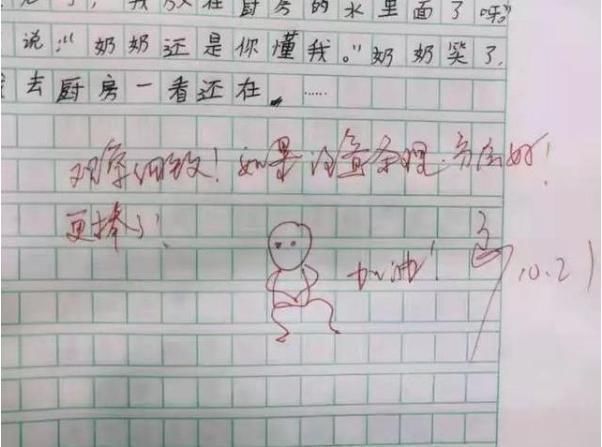 我放在厨房的水里面了呀。”
说：“奶奶还是你懂我。”奶奶笑了，
去厨房一看还在，……
观察细致！如果注意条理，
更棒了！
加油！
10.21